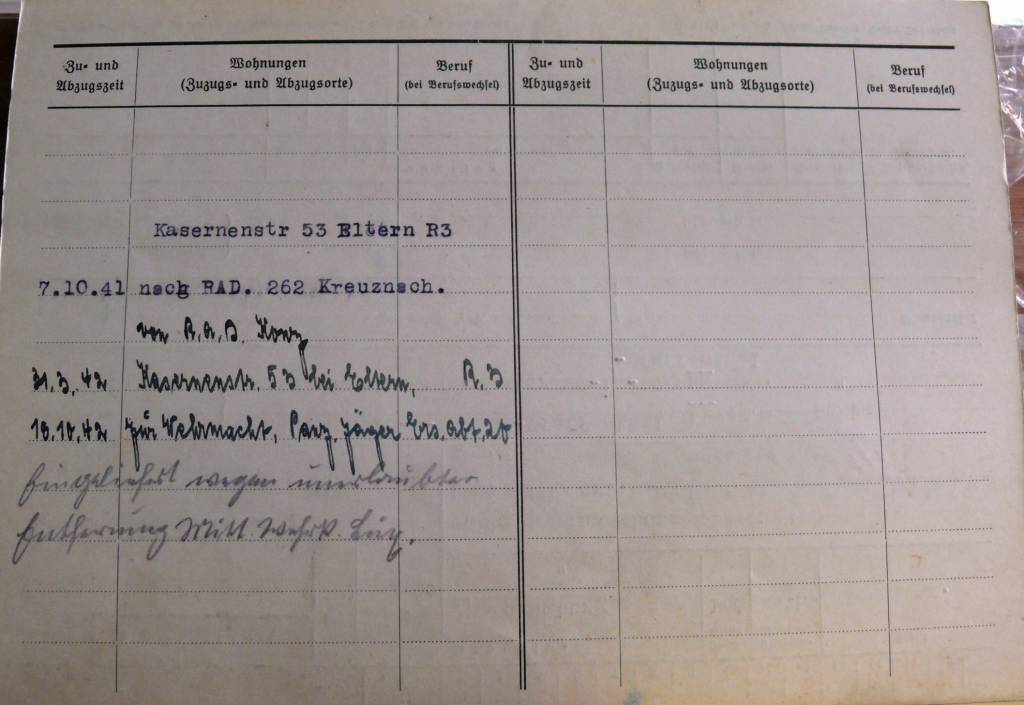 Zu- und Abzugszeit
Wohnungen (Zuzugs- und Abzugsorte)
Beruf (bei Berufswechsel)
Zu- und Abzugszeit
Wohnungen (Zuzugs- und Abzugsorte)
Beruf (bei Berufswechsel)
Kasernenstr 53 Eltern R3
7.10.41 nach RAD. 262 Kreuznach.
von R.A.D.
31.3.42 Kasernenstr. 53 bei Eltern, R.3
Zur Wehrmacht, Panz. Jäger Ers. Abt.
Eingeliefert wegen unerlaubter
Entfernung Mitt.